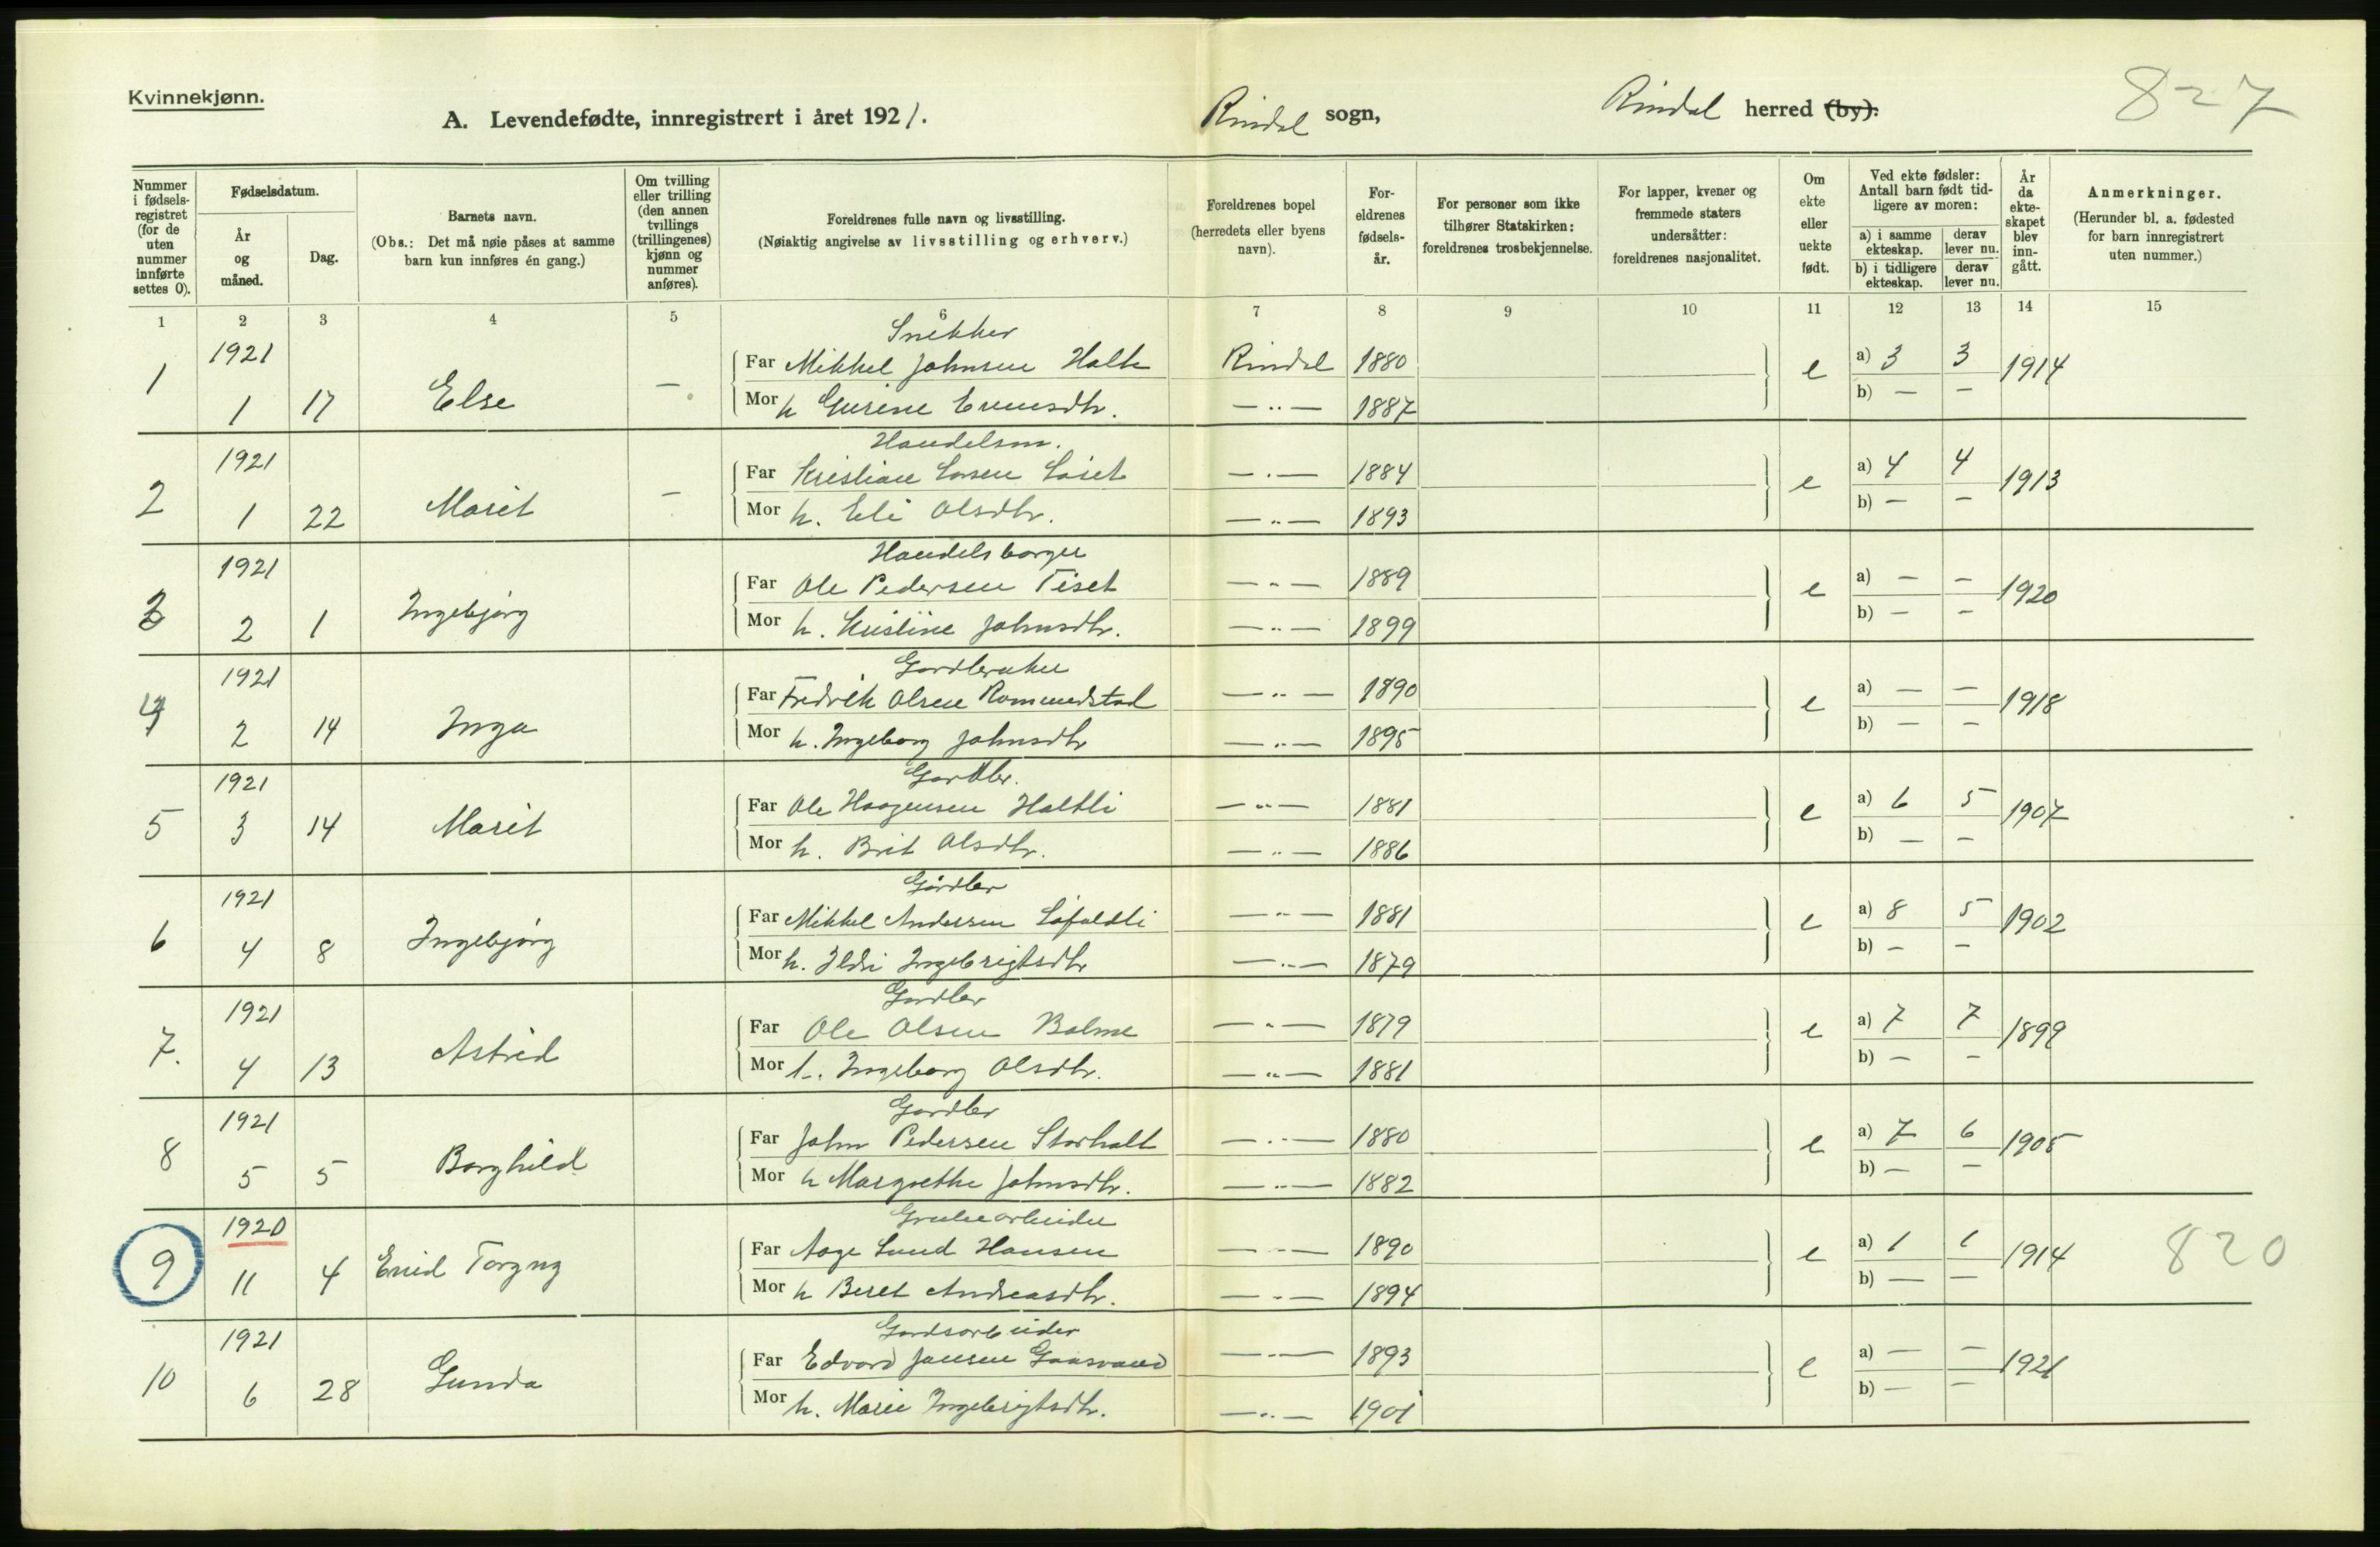 Kvinnekjønn.
A. Levendefødte, innregistrert i året 1921.
Rindal sogn,
Rindal herred (by).
827
Nummer i fødselsregistret (for de uten nummer innførte settes 0).
Fødselsdatum.
År og måned.
Dag.
Barnets navn.
(Obs.: Det må nøie påses at samme barn kun innføres én gang.)
Om tvilling eller trilling (den annen tvillings (trillingenes) kjønn og nummer anføres).
Foreldrenes fulle navn og livsstilling.
(Nøiaktig angivelse av livsstilling og erhverv.)
Foreldrenes bopel (herredets eller byens navn).
Foreldrenes fødselsår.
For personer som ikke tilhører Statskirken: foreldrenes trosbekjennelse.
For lapper, kvener og fremmede staters undersåtter: foreldrenes nasjonalitet.
Om ekte eller uekte født.
Ved ekte fødsler: Antall barn født tidligere av moren:
a) i samme ekteskap.
derav lever nu.
b) i tidligere ekteskap.
derav lever nu.
År da ekteskapet blev inngått.
Anmerkninger.
(Herunder bl. a. fødested for barn innregistrert uten nummer.)
1 2 3 4 5 6 7 8 9 10 11 12 13 14 15
Snekker
1 1921 1 17 Else — Far Mikkel Johnsen Halle Rindal 1880 e a) 3 3 1914
Mor h Gurine Evensdtr. —"— 1887 b) — —
Handelsm.
2 1921 1 22 Marit — Far Kristian Larsen Løset —"— 1884 e a) 4 4 1913
Mor h. Eli Olsdtr. —"— 1893 b) — —
3 1921 2 1 Ingebjørg Far Ole Pedersen Tiset —"— 1889 e a) — — 1920
Mor h. Kristine Johnsdtr. —"— 1899 b) — —
Gardbruker
4 1921 2 14 Inga Far Fredrik Olsen Romundstad —"— 1890 e a) — — 1918
Mor h. Ingeborg Johnsdtr —"— 1895 b) — —
Gardbr.
5 1921 3 14 Marit Far Ole Haagensen Haltli —"— 1881 e a) 6 5 1907
Mor h. Brit Olsdtr. —"— 1886 b) — —
Gardbr
6 1921 4 8 Ingebjørg Far Mikkel Andersen Løfaldli —"— 1881 e a) 8 5 1902
Mor h. Ildri Ingebrigtsdtr —"— 1879 b) — —
Gardbr
7. 1921 4 13 Astrid Far Ole Olsen Bolme —"— 1879 e a) 7 7 1899
Mor h. Ingeborg Olsdtr. —"— 1881 b) — —
Gardbr
8 1921 5 5 Borghild Far John Pedersen Storholt —"— 1880 e a) 7 6 1905
Mor h Margrethe Johnsdtr. —"— 1882 b) — —
Grubearbeider
9 1920 11 4 Enid Torgny Far Aage Lund Hansen —"— 1890 e a) 1 1 1914 820
Mor h Beret Andreasdtr. —"— 1894 b) — —
Gardsarbeider
10 1921 6 28 Gunda Far Edvard Jansen —"— 1893 e a) — — 1921
Mor h. Marie Ingebrigtsdtr. —"— 1901 b) — —